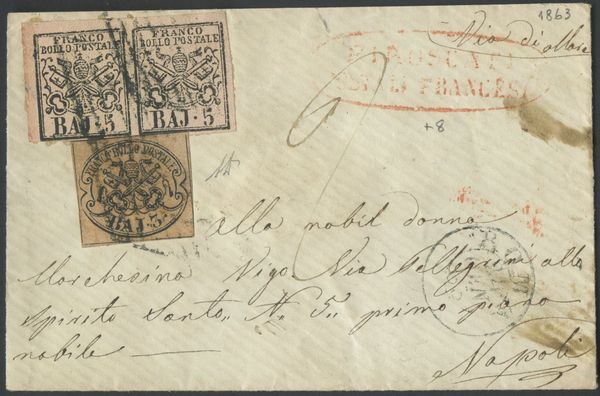 1863
Via di Mare
FRANCO
BOLLO POSTALE
BAJ. 5
FRANCO
BOLLO POSTALE
BAJ. 5
PIROSCAFI
POSTALI FRANCESI
+8
FRANCO BOLLO POSTALE
BAJ. 3
Alla nobil donna
Marchesina Vigo Via Pellegrini allo
Spirito Santo N. 5. primo piano
nobile —
Napoli